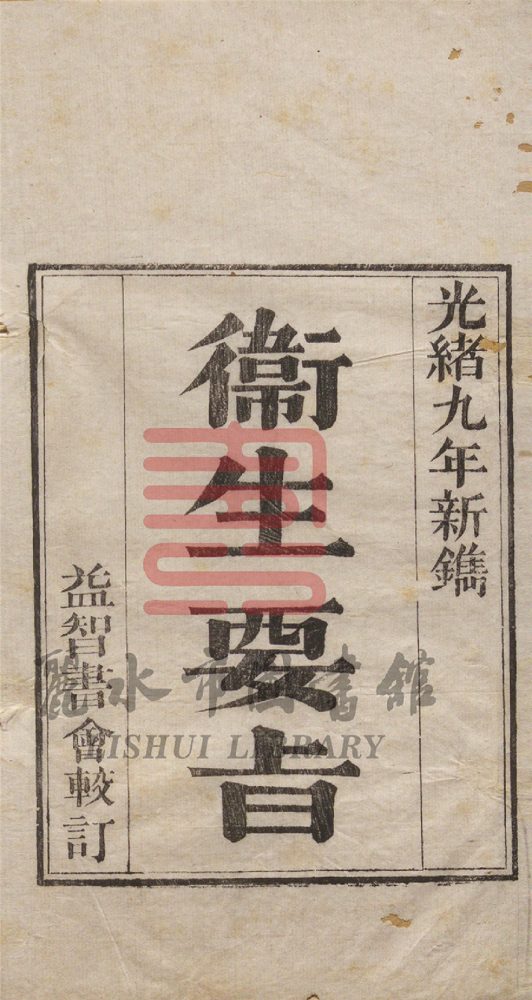 光緒九年新鐫
衞生要旨
益智書會較訂
麗水市图書館
LISHUI LIBRARY